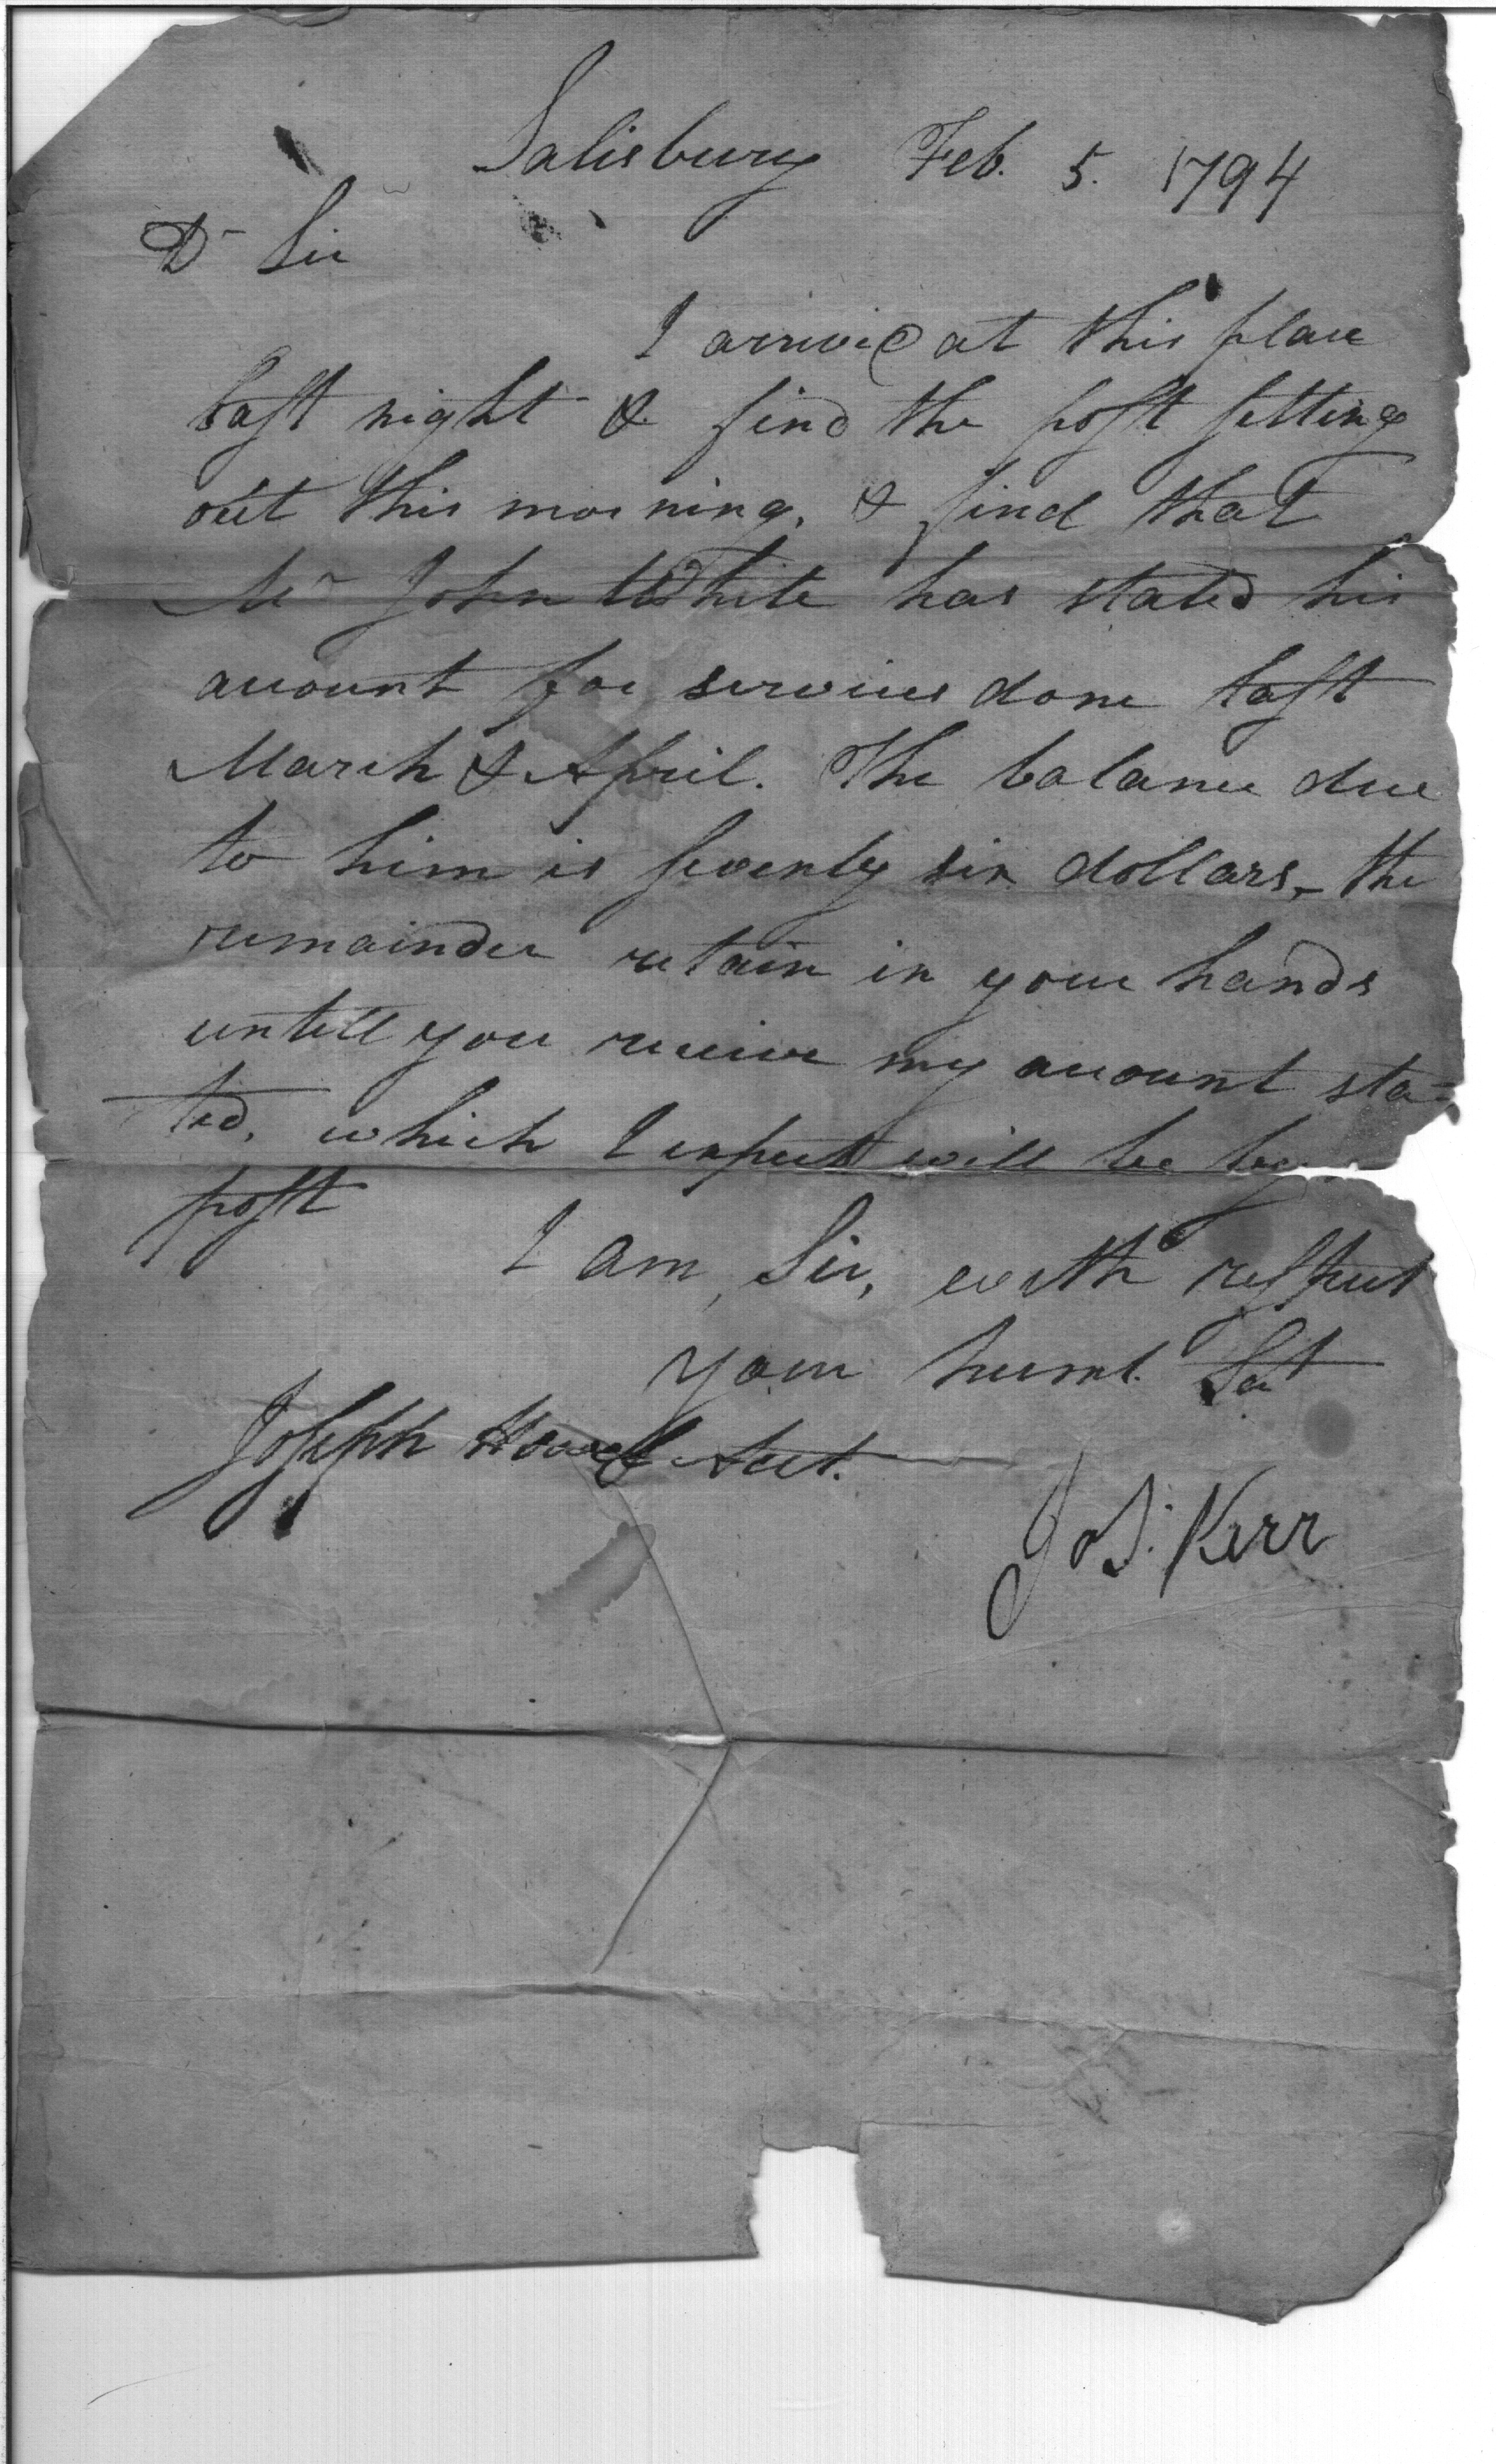 Salisbury Feb. 5. 1794
Dr Sir
I arrived at this place
last night & find the post setting
out this morning, & find that
Mr John White has stated his
account for services done last
March & April. The balance due
to him is seventy six dollars, the
remainder retain in your hands
untill you receive my account sta-
ted, which I expect will be by
post
I am, Sir, with respect
your huml. Sert
Joseph Howell Acct.
Jos. Kerr